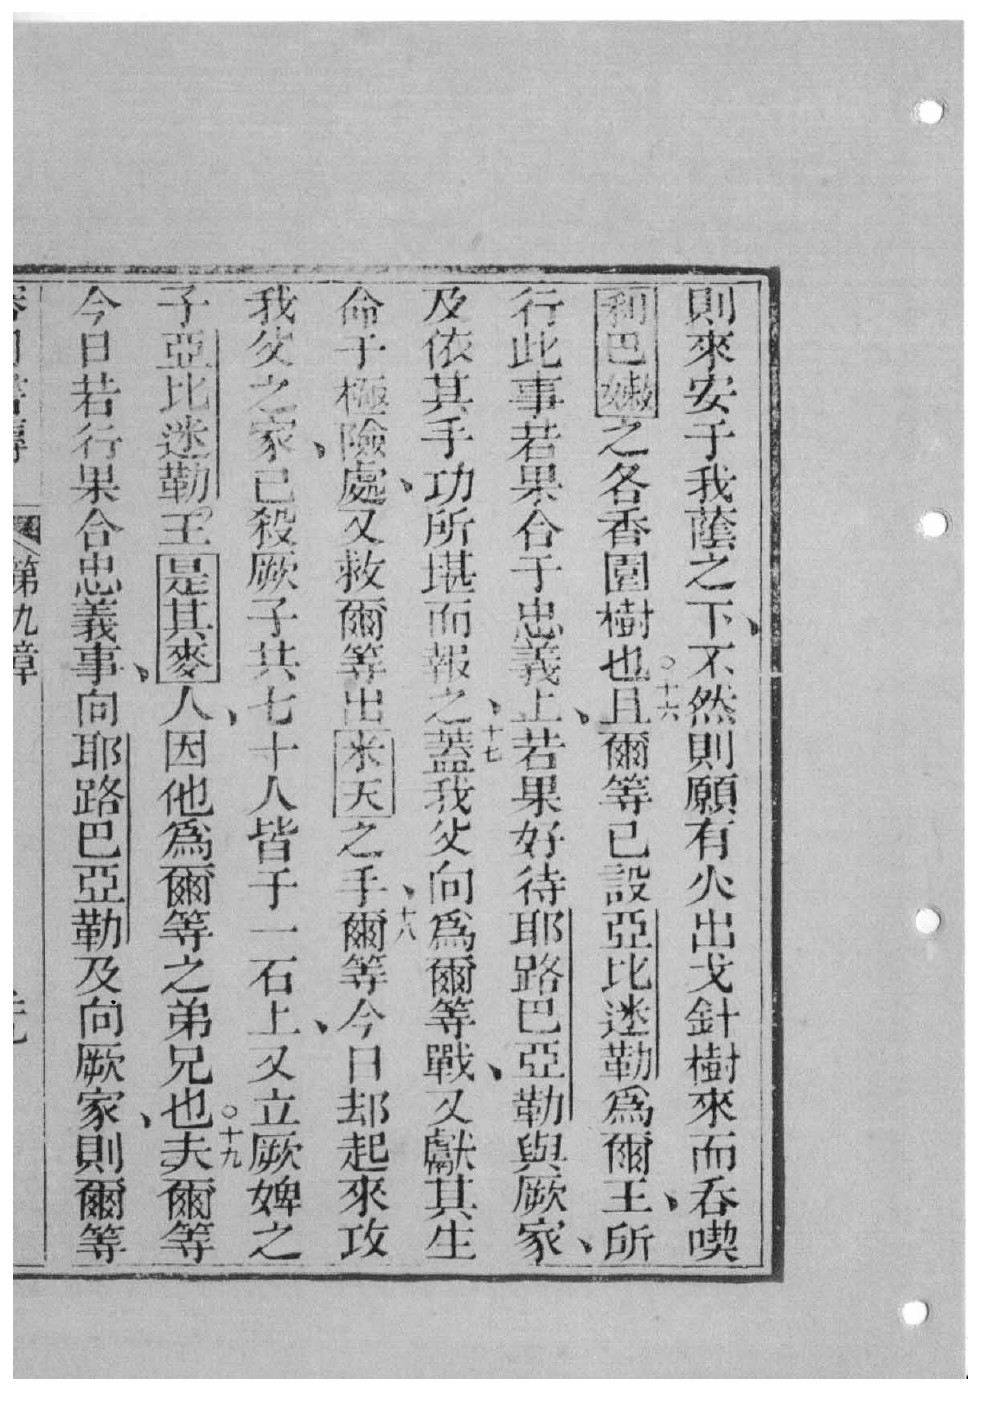 則來安于我蔭之下、不然則願有火出戈針樹來而呑喫
利巴嫩之各香園樹也○十六且爾等已設亞比迷勒爲爾王、所
行此事若果合于忠義上、若果好待耶路巴亞勒與厥家、
及依其手功所堪而報之、十七蓋我父向爲爾等戰、又獻其生
命于極險處、又救爾等出米天之手、十八爾等今日却起來攻
我父之家、已殺厥子共七十人皆于一石上、又立厥婢之
子亞比迷勒。王是其麥人、因他爲爾等之弟兄也○十九夫爾等
今日若行果合忠義事、向耶路巴亞勒及向厥家、則爾等
第九章